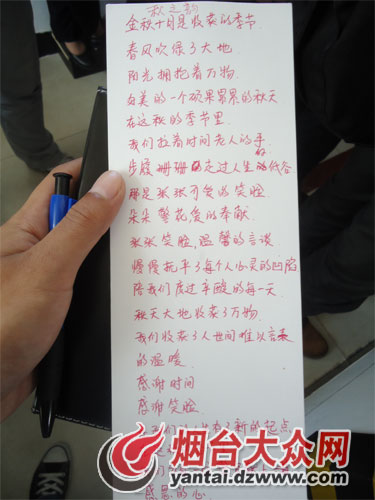 秋之韵
金秋十月是收获的季节
春风吹绿了大地
阳光拥抱着万物
的一个硕果累累的秋天
在这秋的季节里
我们拉着时间老人的手
步履珊珊走过人生的低谷
那是张张可爱的笑脸
朵朵警花爱的奉献
张张笑脸,温馨的言谈
慢慢抚平了每个人心灵的凹陷
陪我们度过辛酸的每一天
秋天大地收获了万物
我们收获了人世间难以言表
的温暖
感谢时间
感谢笑脸
们 有了新的起点
们
感恩的心
烟台大众网
yantai.dzwww.com